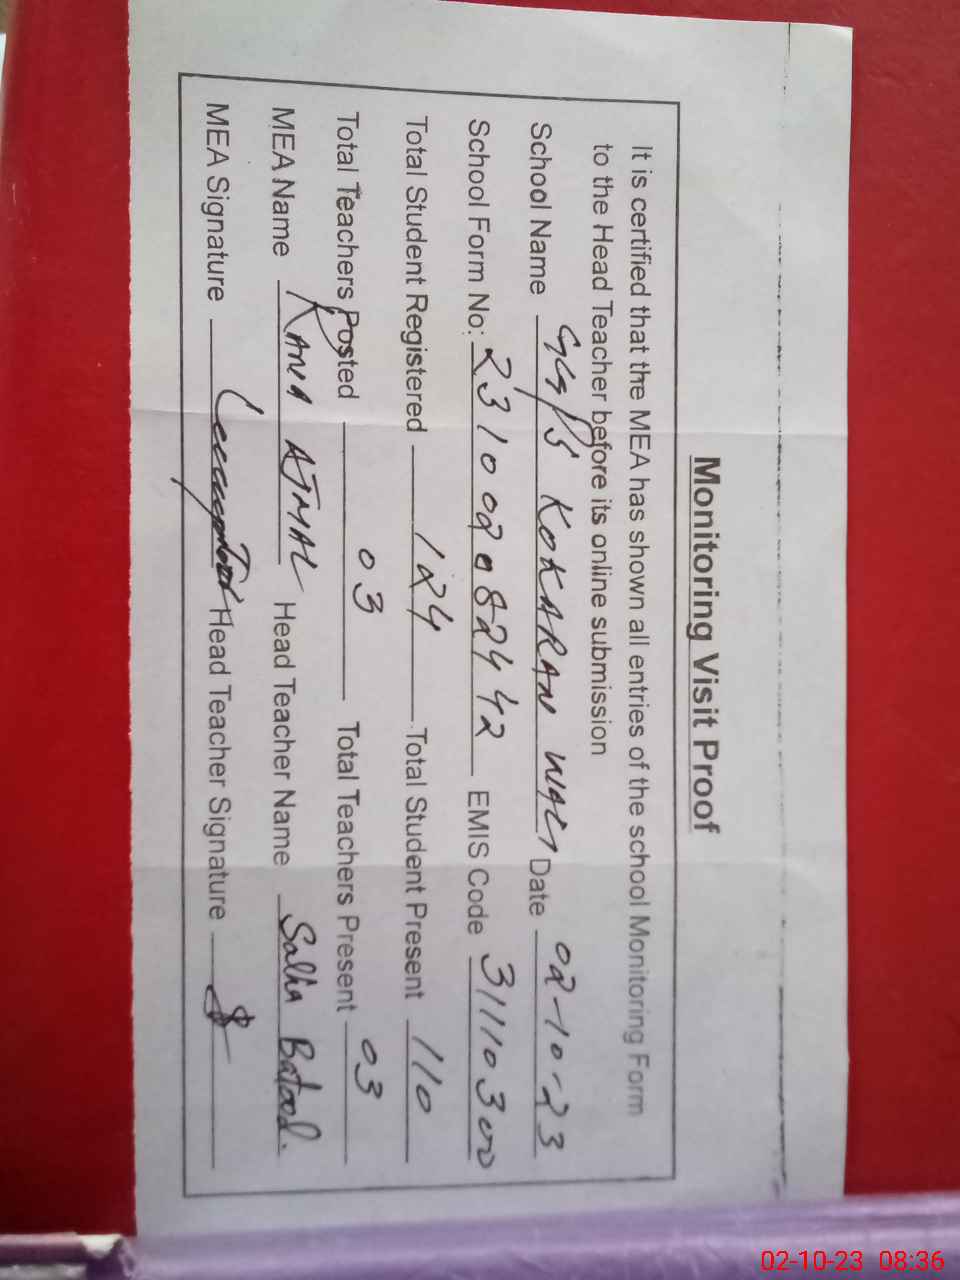 Monitoring Visit Proof
It is certified that the MEA has shown all entries of the school Monitoring Form
to the Head Teacher before its online submission
School Name GGPS KOKARAN WALI Date 02-10-23
School Form No: 231002082442 EMIS Code 31110300
Total Student Registered 124 Total Student Present 110
Total Teachers Posted 03 Total Teachers Present 03
MEA Name RANA AJMAL Head Teacher Name Salha Batool.
MEA Signature Head Teacher Signature
02-10-23 08:36